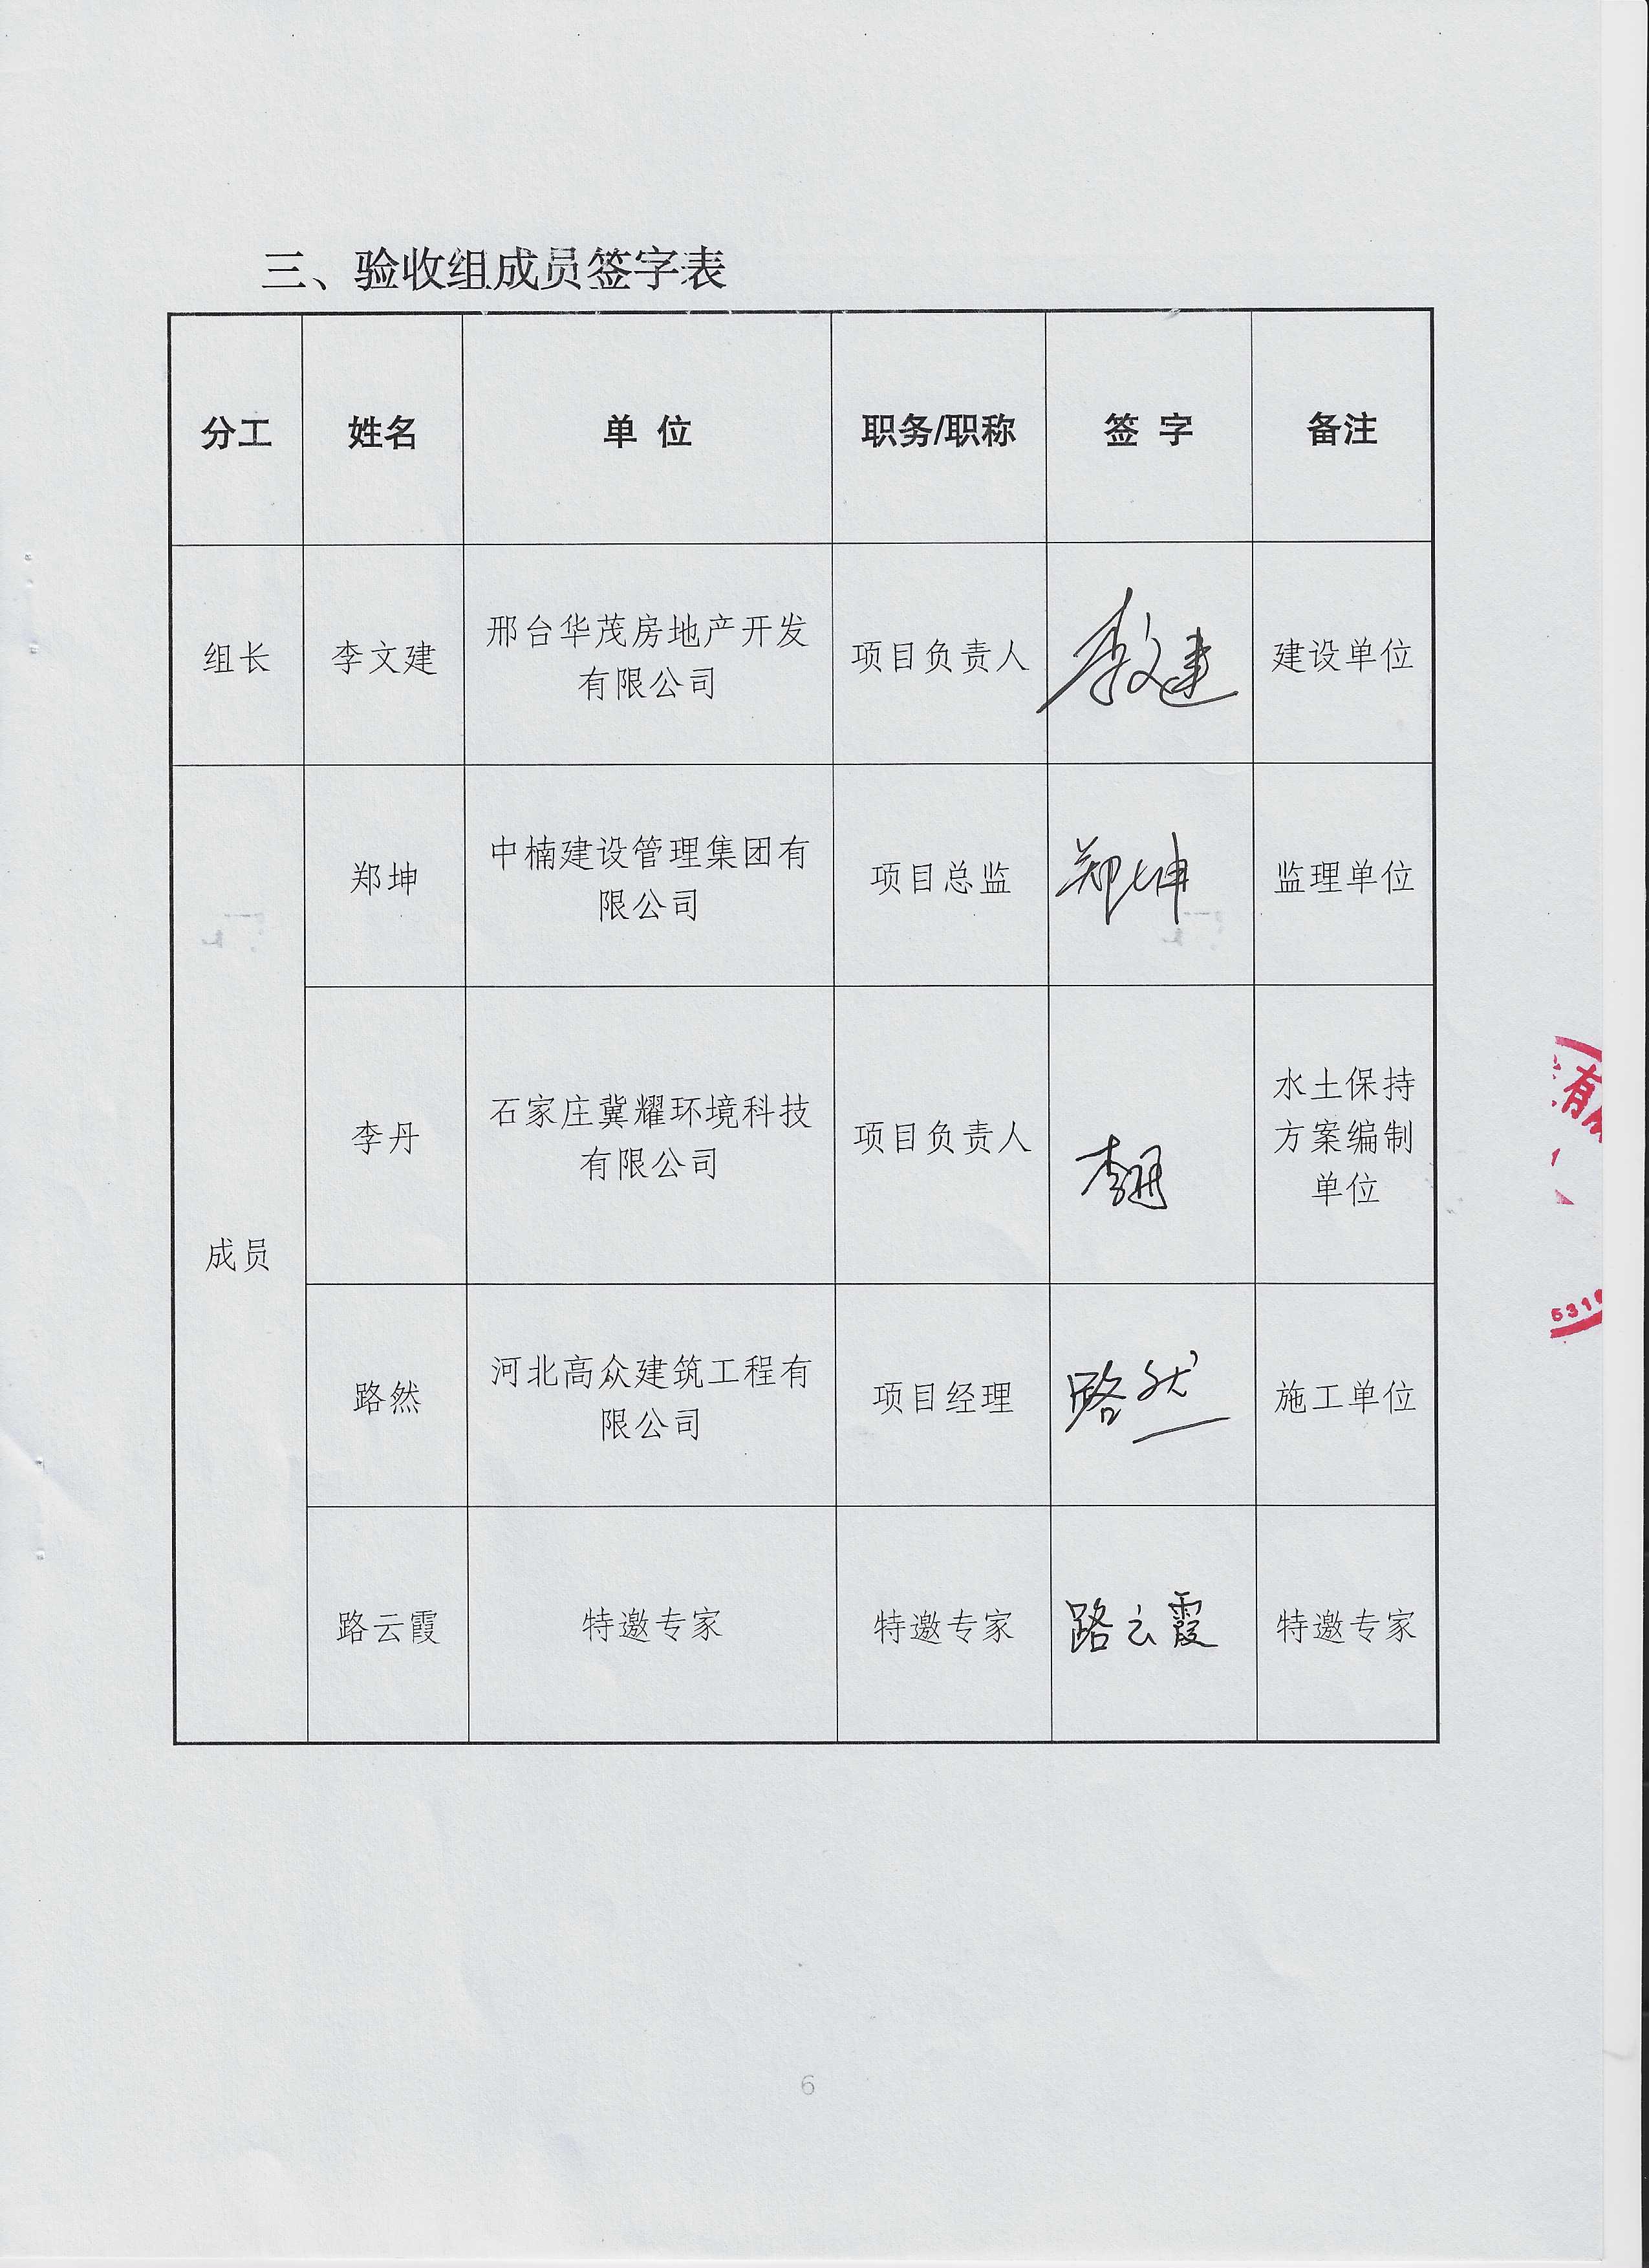 三、验收组成员签字表
分工 姓名 单 位 职务/职称 签 字 备注
邢台华茂房地产开发
组长 李文建 项目负责人 李文建 建设单位
有限公司
中楠建设管理集团有
郑坤 项目总监 郑坤 监理单位
限公司
水土保持
石家庄冀耀环境科技
李丹 项目负责人 李丹 方案编制
有限公司
单位
成员
河北高众建筑工程有
路然 项目经理 路然 施工单位
限公司
路云霞 特邀专家 特邀专家 路云霞 特邀专家
有
531
6